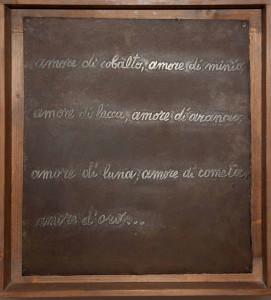 amore di cobalto, amore di minio,
amore di lacca, amore di arancio,
amore di luna, amore di cometa,
amore d'oro...